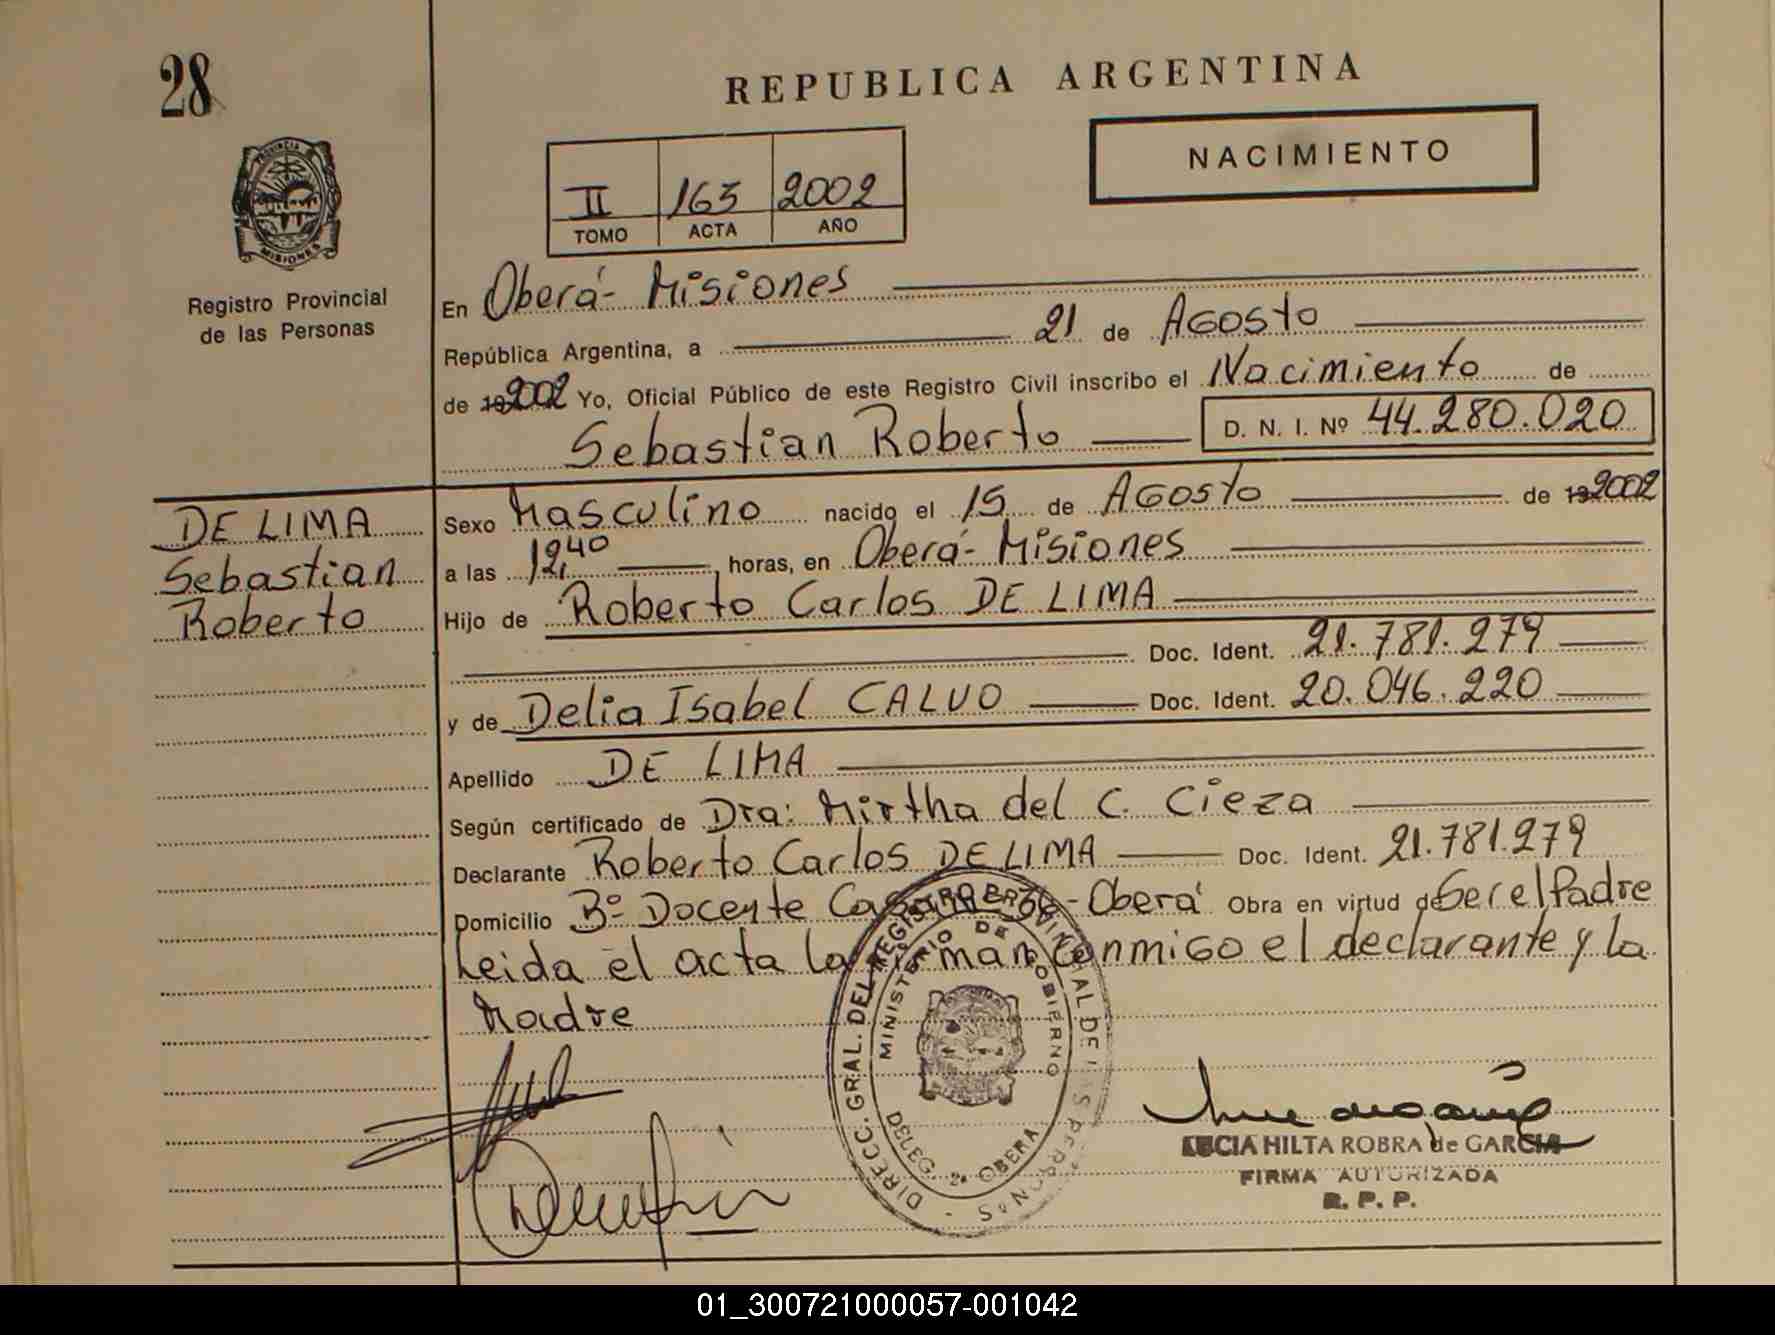 28
REPUBLICA ARGENTINA
NACIMIENTO
II 163 2002
TOMO ACTA AÑO
PROVINCIA
MISIONES
Registro Provincial
de las Personas
En Oberá - Misiones
República Argentina, a 21 de Agosto
de 2002 Yo, Oficial Público de este Registro Civil inscribo el Nacimiento de
Sebastian Roberto D. N. I. Nº 44.280.020
DE LIMA
Sebastian
Roberto
Sexo Masculino nacido el 15 de Agosto de 192002
a las 12,40 horas, en Oberá - Misiones
Hijo de Roberto Carlos DE LIMA
Doc. Ident. 21.781.279
y de Delia Isabel CALVO Doc. Ident. 20.046.220
Apellido DE LIMA
Según certificado de Dra: Mirtha del C. Cieza
Declarante Roberto Carlos DE LIMA Doc. Ident. 21.781.279
Domicilio Bº Docente - Oberá Obra en virtud de Ser el Padre
Leida el acta la firman conmigo el declarante y la
Madre
DIRECC. GRAL. DEL REGISTRO PROVINCIAL DE LAS PERSONAS
MINISTERIO DE GOBIERNO
DELEG. 2ª OBERA
LUCIA HILTA ROBRA de GARCIA
FIRMA AUTORIZADA
R. P. P.
01_300721000057-001042